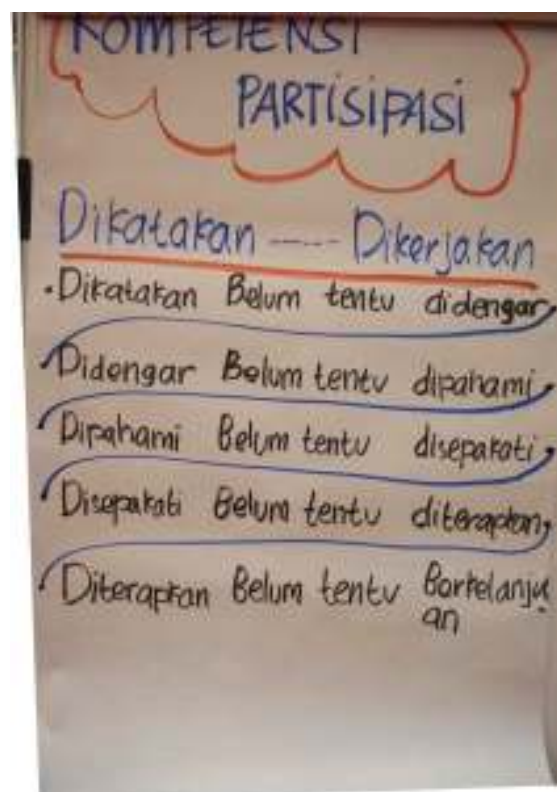 KOMPETENSI
PARTISIPASI
Dikatakan ----- Dikerjakan
. Dikatakan Belum tentu didengar
Didengar Belum tentu dipahami
Dipahami Belum tentu disepakati
Disepakati Belum tentu diterapkan
Diterapkan Belum tentu Berkelanju
an